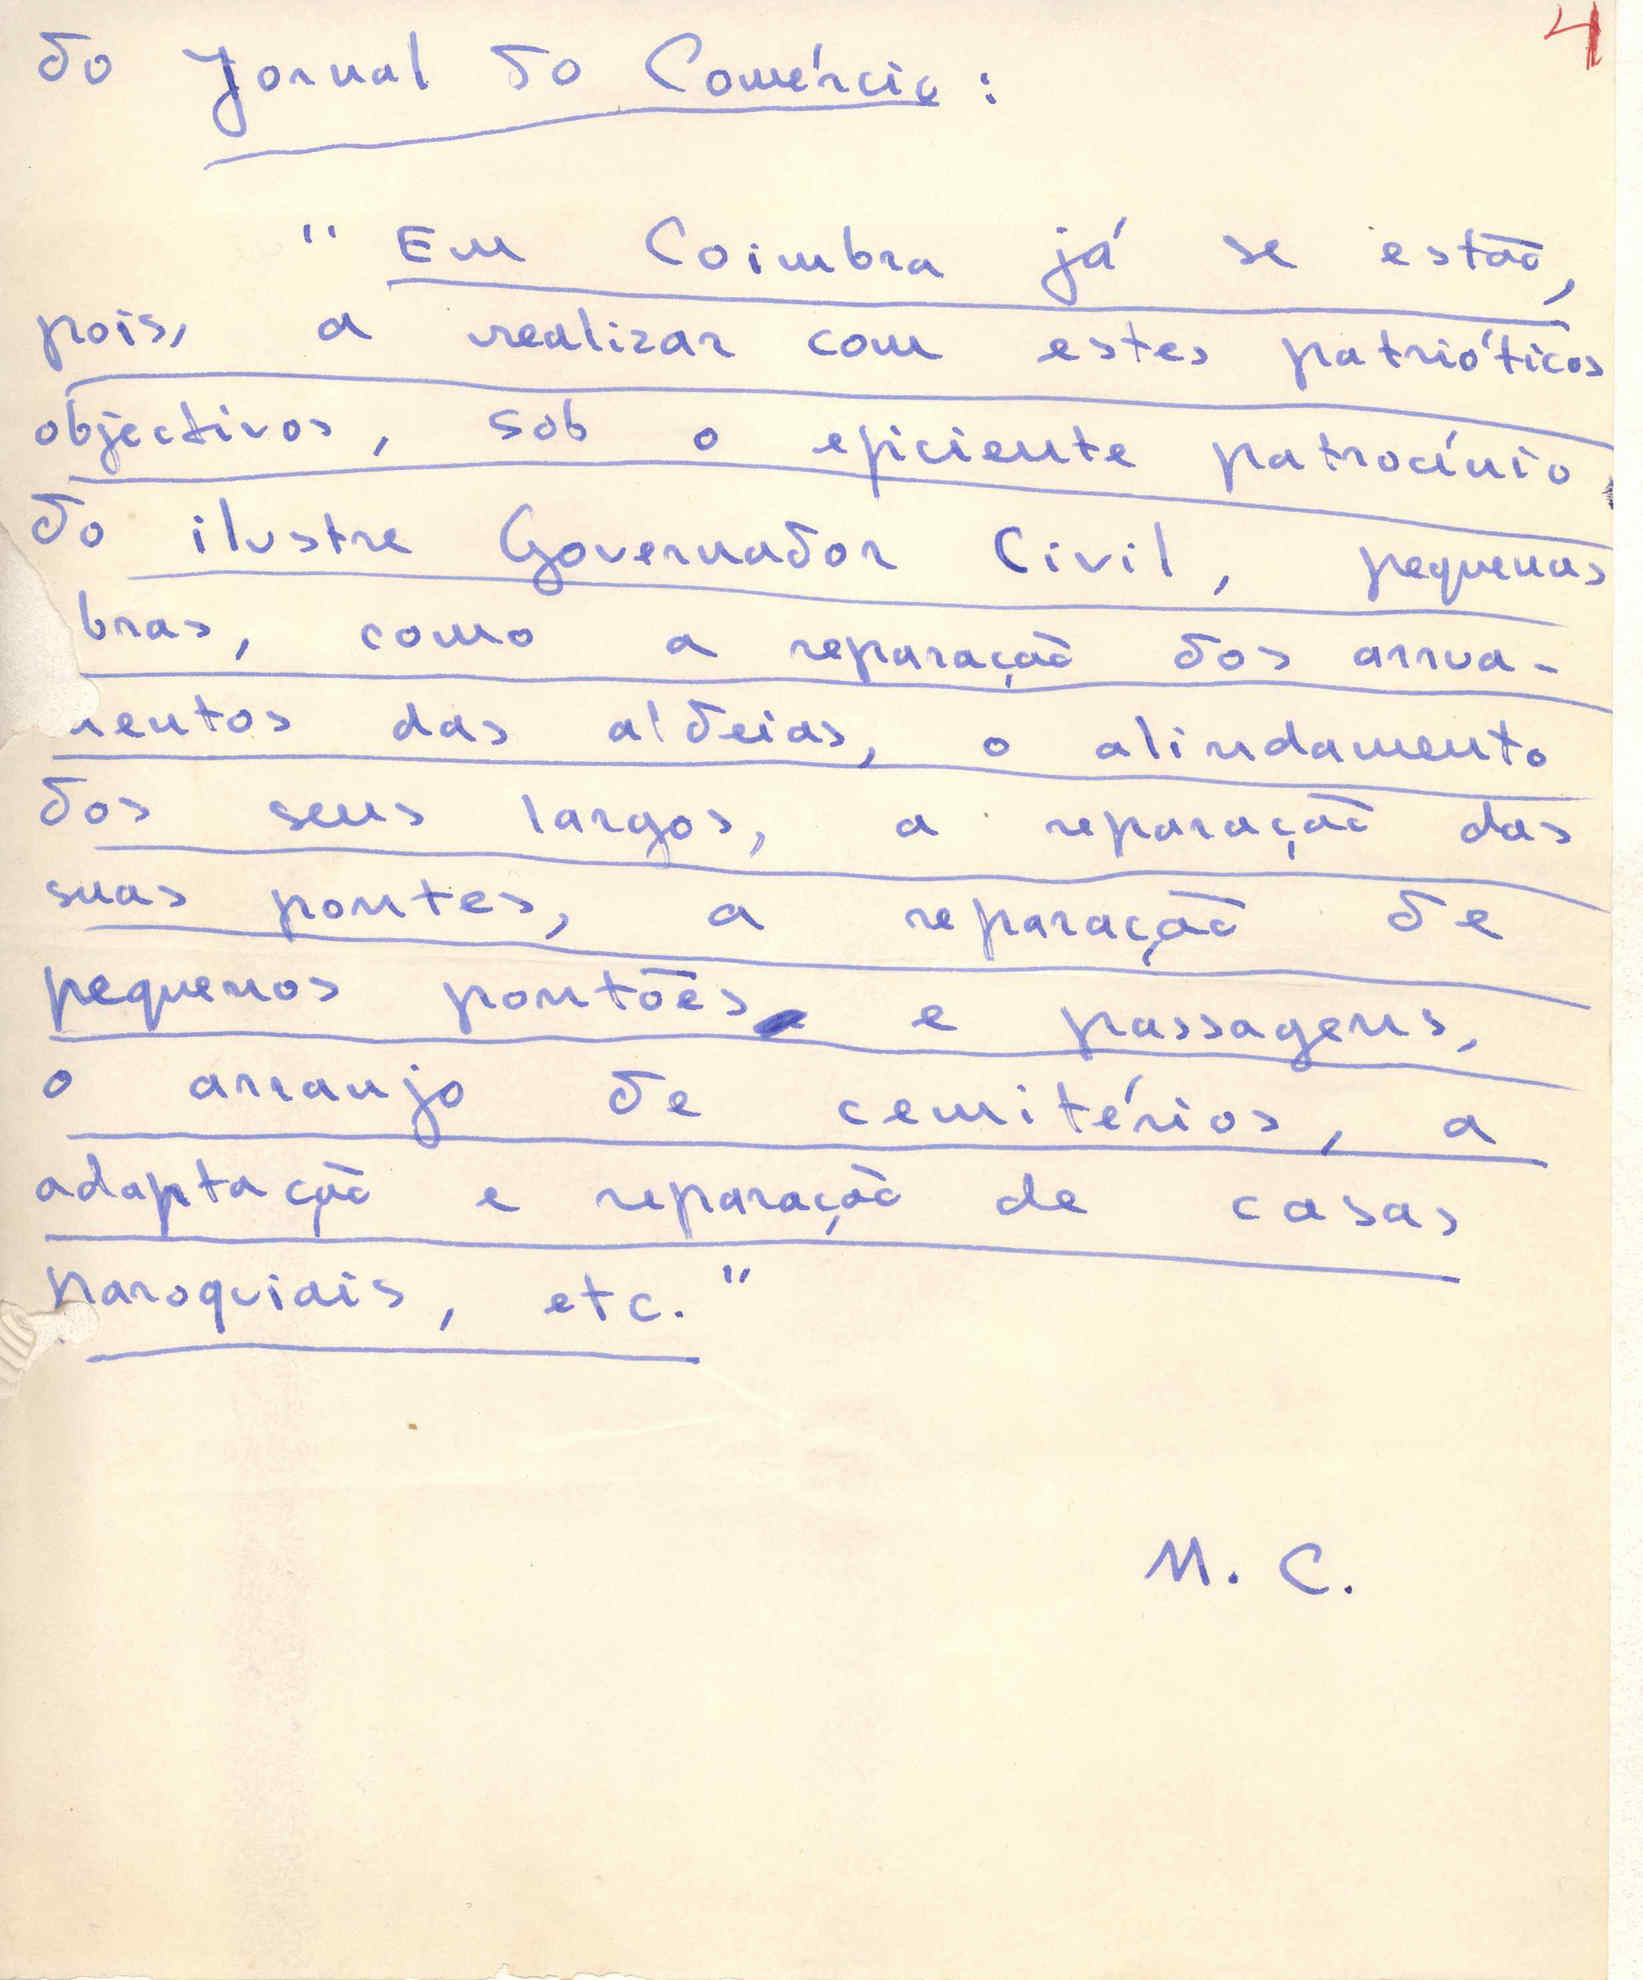 4
do Jornal do Comércio :
" Em Coimbra já se estão,
pois, a realizar com estes patrióticos
objectivos, sob o eficiente patrocínio
do ilustre Governador Civil, pequenas
bras, como a reparação dos arrua-
mentos das aldeias, o alindamento
dos seus largos, a reparação das
suas pontes, a reparação de
pequenos pontões e passagens,
o arranjo de cemitérios, a
adaptação e reparação de casas
paroquiais, etc. "
M. C.